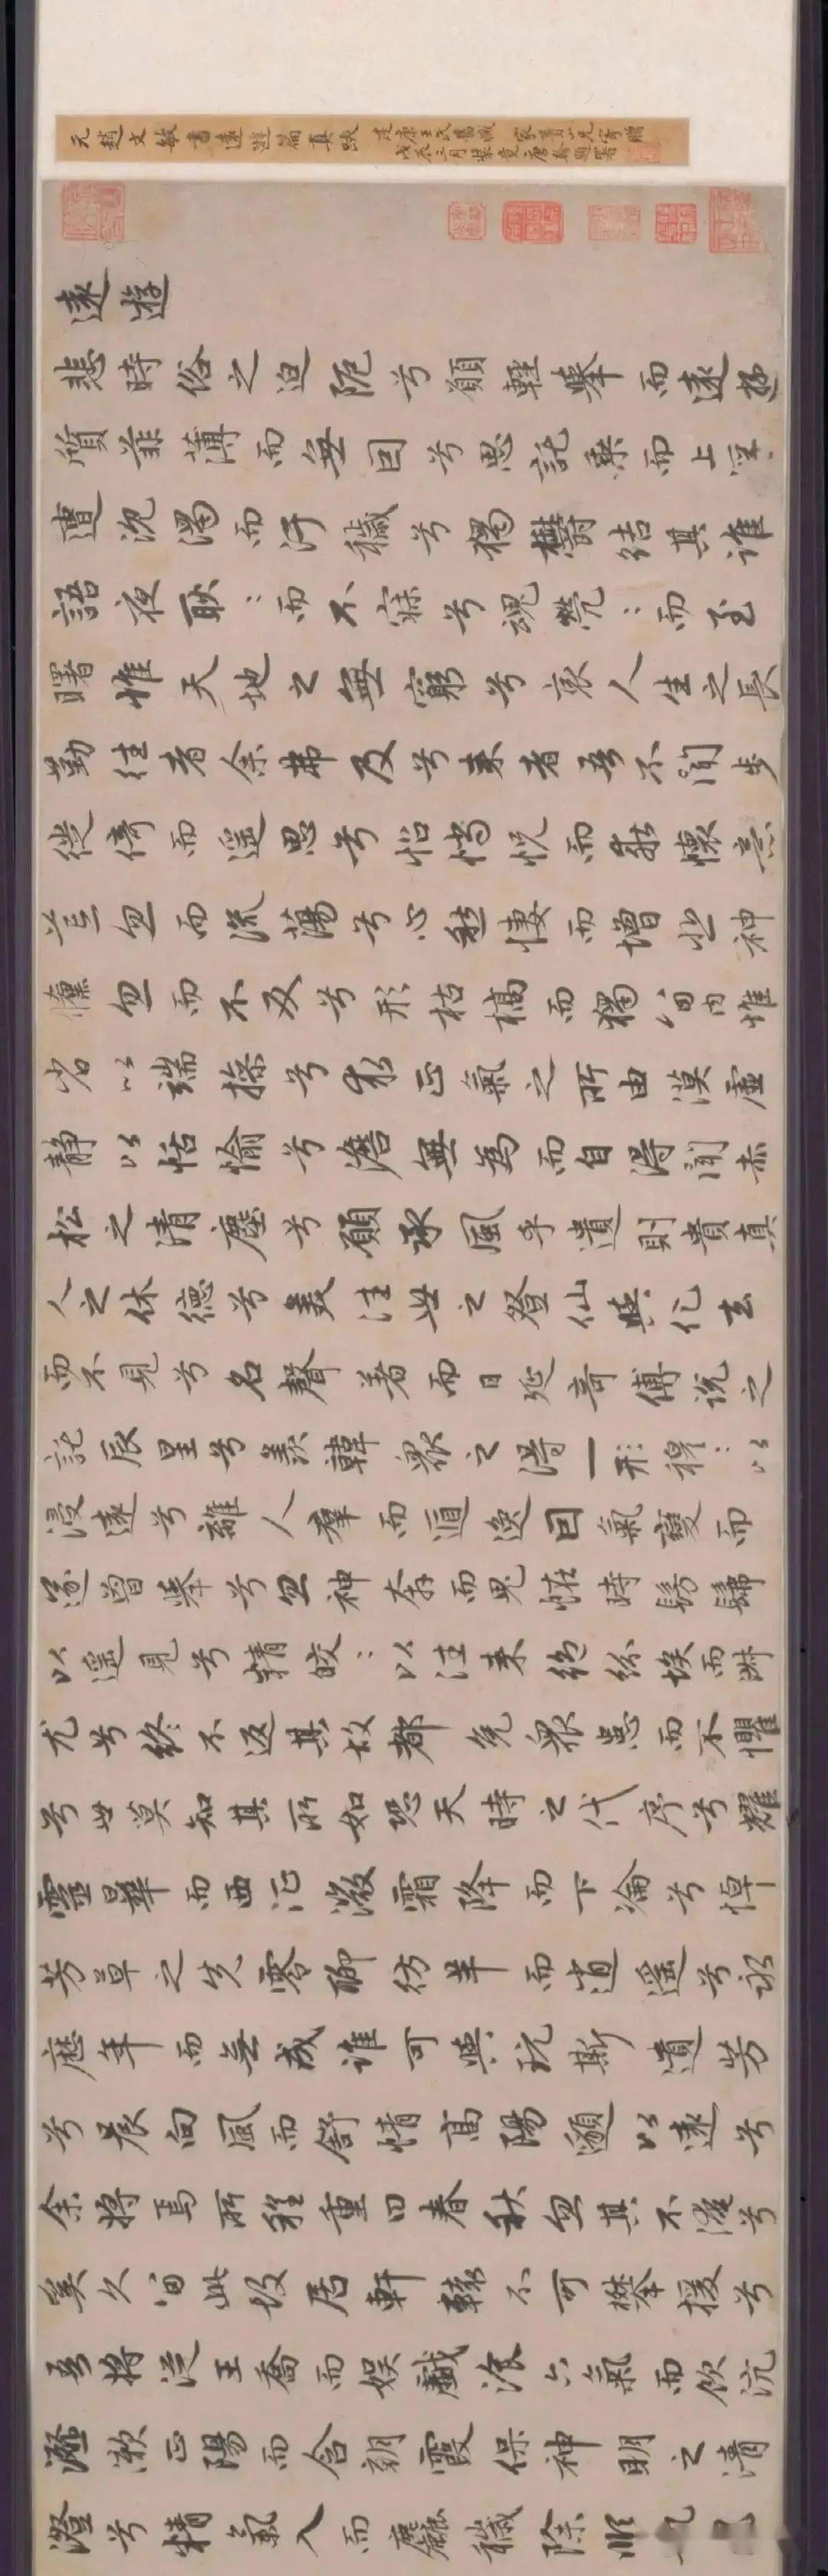 元趙文敏書遠遊篇真跡
遠遊
悲時俗之迫阨兮願輕舉而遠遊
質菲薄而無因兮思託乘而上浮
遭沉濁而汙穢兮獨鬱結其誰
語夜耿〻而不寐兮魂焭〻而至
曙惟天地之無窮兮哀人生之長
勤往者余弗及兮来者吾不聞步
徙倚而遥思兮怊惝怳而乖懷意
荒忽而流蕩兮心愁悽而增悲神
儵忽而不反兮形枯槁而獨留内惟
省以端操兮求正氣之所由漠虚
静以恬愉兮澹無為而自得聞赤
松之清塵兮願承風乎遺則貴真
人之休德兮羙往世之登仙與化去
而不見兮名聲著而日延奇傅說之
託辰星兮羨韓衆之得一形穆〻以
浸遠兮離人羣而遁逸因氣變而
遂曾舉兮忽神奔而鬼恠時髣髴
以遥見兮精皎〻以往来絶紛埃而淑
尤兮終不返其故都免衆患而不懼
兮世莫知其所如恐天時之代序兮耀
靈曅而西征微霜降而下淪兮悼
芳草之先零聊仿羊而逍遥兮永
歴年而無成誰可與玩斯遺芳
兮晨向風而舒情高陽邈以遠兮
余將焉所程重曰春秋忽其不淹兮
奚久留此故居軒轅不可攀援兮
吾將從王喬而娱戲飡六氣而飲沆
瀣漱正陽而含朝霞保神明之清
澄兮精氣入而麤穢除順凱